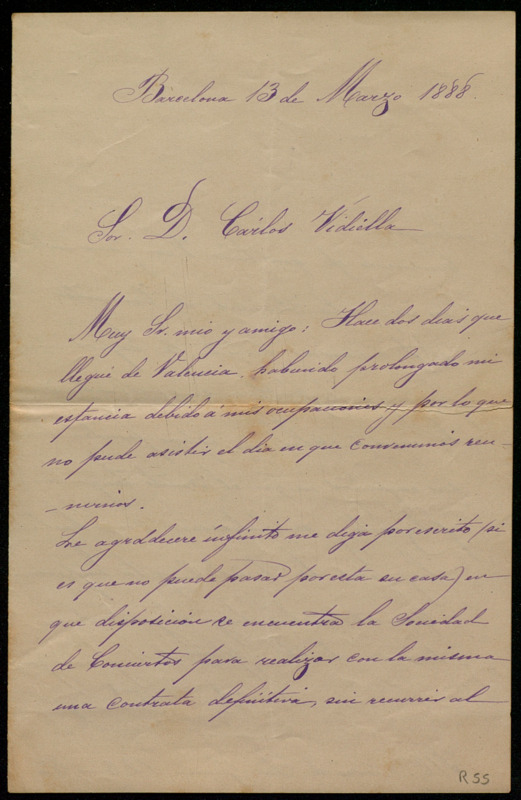 Barcelona 13 de Marzo 1888.
Sor. D. Carlos Vidiella
Muy Sr. mio y amigo: Hace dos dias que
llegué de Valencia, habiendo prolongado mi
estancia debido á mis ocupaciones y por lo que
no pude asistir el dia en que convenimos reu-
-nirnos.
Le agradecere infinito me diga por escrito (si
es que no puede pasar por esta su casa) en
que disposicion se encuentra la Sociedad
de Conciertos para realizar con la misma
una contrata definitiva, sin recurrir al
R 55